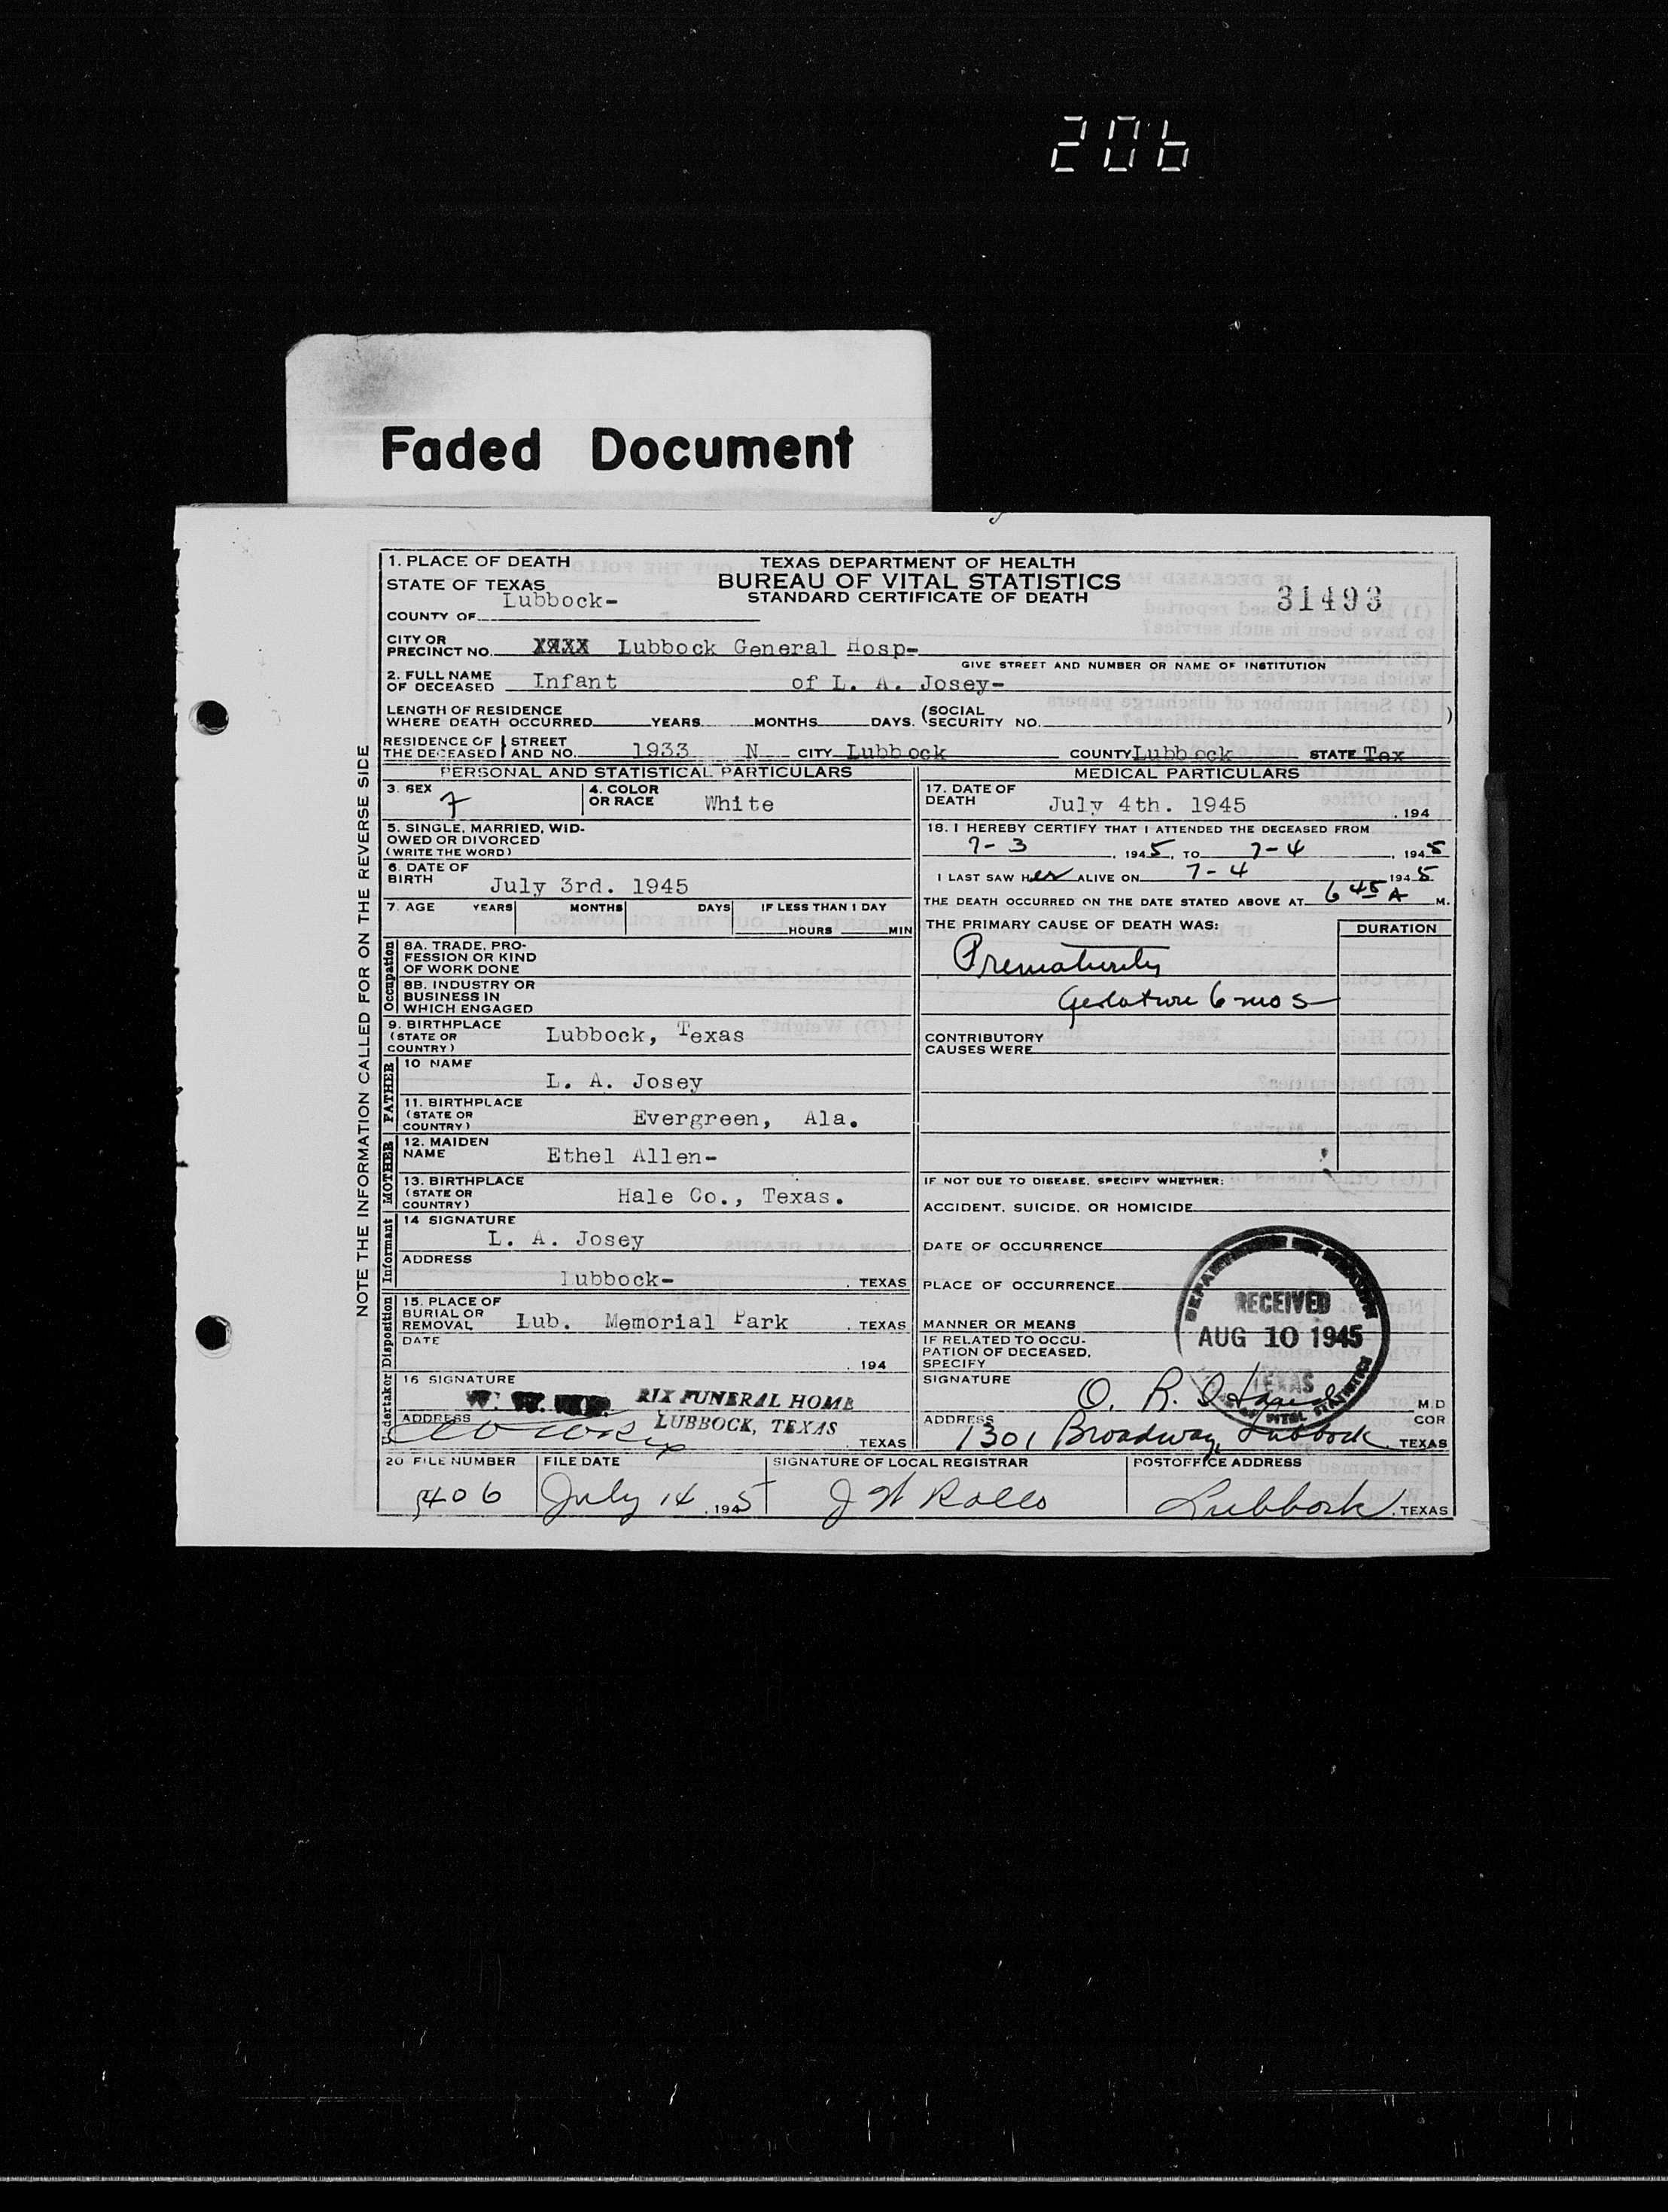 206
Faded Document
NOTE THE INFORMATION CALLED FOR ON THE REVERSE SIDE
1. PLACE OF DEATH
STATE OF TEXAS
COUNTY OF Lubbock-
TEXAS DEPARTMENT OF HEALTH
BUREAU OF VITAL STATISTICS
STANDARD CERTIFICATE OF DEATH
31493
CITY OR PRECINCT NO. XXXX Lubbock General Hosp-
GIVE STREET AND NUMBER OR NAME OF INSTITUTION
2. FULL NAME OF DECEASED Infant of L. A. Josey-
LENGTH OF RESIDENCE WHERE DEATH OCCURRED YEARS MONTHS DAYS. (SOCIAL SECURITY NO. )
RESIDENCE OF THE DECEASED STREET AND NO. 1933 N CITY Lubbock COUNTY Lubbock STATE Tex
PERSONAL AND STATISTICAL PARTICULARS
3. SEX F
4. COLOR OR RACE White
5. SINGLE, MARRIED, WIDOWED OR DIVORCED
(WRITE THE WORD)
6. DATE OF BIRTH July 3rd. 1945
7. AGE YEARS MONTHS DAYS IF LESS THAN 1 DAY
HOURS MIN
Occupation
8A. TRADE, PROFESSION OR KIND OF WORK DONE
8B. INDUSTRY OR BUSINESS IN WHICH ENGAGED
9. BIRTHPLACE (STATE OR COUNTRY) Lubbock, Texas
FATHER
10 NAME L. A. Josey
11. BIRTHPLACE (STATE OR COUNTRY) Evergreen, Ala.
MOTHER
12. MAIDEN NAME Ethel Allen-
13. BIRTHPLACE (STATE OR COUNTRY) Hale Co., Texas.
Informant
14 SIGNATURE L. A. Josey
ADDRESS Lubbock- , TEXAS
Disposition
15. PLACE OF BURIAL OR REMOVAL Lub. Memorial Park , TEXAS
DATE , 194
Undertaker
16 SIGNATURE RIX FUNERAL HOME
ADDRESS LUBBOCK, TEXAS
, TEXAS
MEDICAL PARTICULARS
17. DATE OF DEATH July 4th. 1945 , 194
18. I HEREBY CERTIFY THAT I ATTENDED THE DECEASED FROM
7-3 , 1945, TO 7-4 , 1945
I LAST SAW Her ALIVE ON 7-4 1945
THE DEATH OCCURRED ON THE DATE STATED ABOVE AT 6 45 A M.
THE PRIMARY CAUSE OF DEATH WAS: DURATION
Prematurity
6 mos
CONTRIBUTORY CAUSES WERE
IF NOT DUE TO DISEASE, SPECIFY WHETHER:
ACCIDENT, SUICIDE, OR HOMICIDE
DATE OF OCCURRENCE
PLACE OF OCCURRENCE
MANNER OR MEANS
IF RELATED TO OCCUPATION OF DECEASED, SPECIFY
RECEIVED
AUG 10 1945
TEXAS
SIGNATURE O. R. M.D
ADDRESS 1301 Broadway, Lubbock, TEXAS
COR
20 FILE NUMBER 406
FILE DATE July 14, 1945
SIGNATURE OF LOCAL REGISTRAR
POSTOFFICE ADDRESS Lubbock, TEXAS